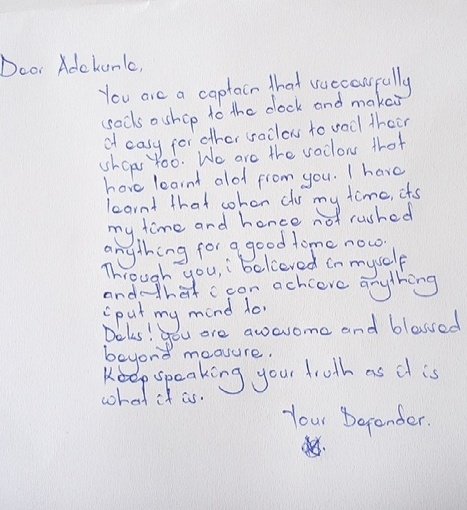 Dear Adekunle,
You are a captain that successfully
sails a ship to the dock and makes
it easy for other sailors to sail their
ships too. We are the sailors that
have learnt alot from you. I have
learnt that when its my time, its
my time and hence not rushed
anything for a good time now.
Through you, i believed in myself
and that i can achieve anything
i put my mind to.
Deks! you are awesome and blessed
beyond measure.
Keep speaking your truth as it is
what it is.
Your Defender.